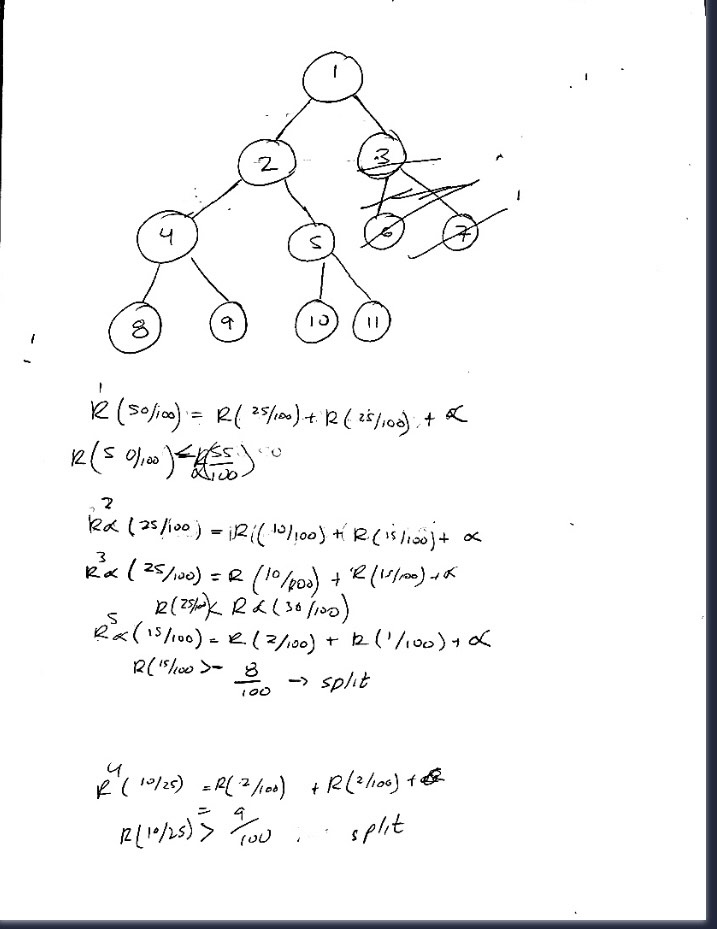 1
2 3
4 5 6 7
8 9 10 11
1
R(50/100) = R(25/100) + R(25/100) + α
R(50/100) < 55/100
2
Rα(25/100) = R(10/100) + R(15/100) + α
3
Rα(25/100) = R(10/100) + R(15/100) + α
R(25/100) < Rα(30/100)
5
Rα(15/100) = R(2/100) + R(1/100) + α
R(15/100 > 8/100 → split
4
R(10/25) = R(2/100) + R(2/100) + α
R(10/25) > = 9/100 split